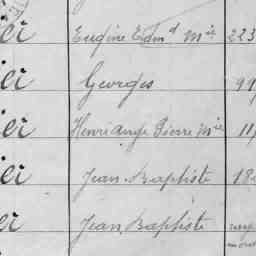 ier Eugène Edm^d M^ie 223
ier Georges 99
ier Henri Ange Pierre M^ie 11
ier Jean Baptiste 18
er Jean Baptiste